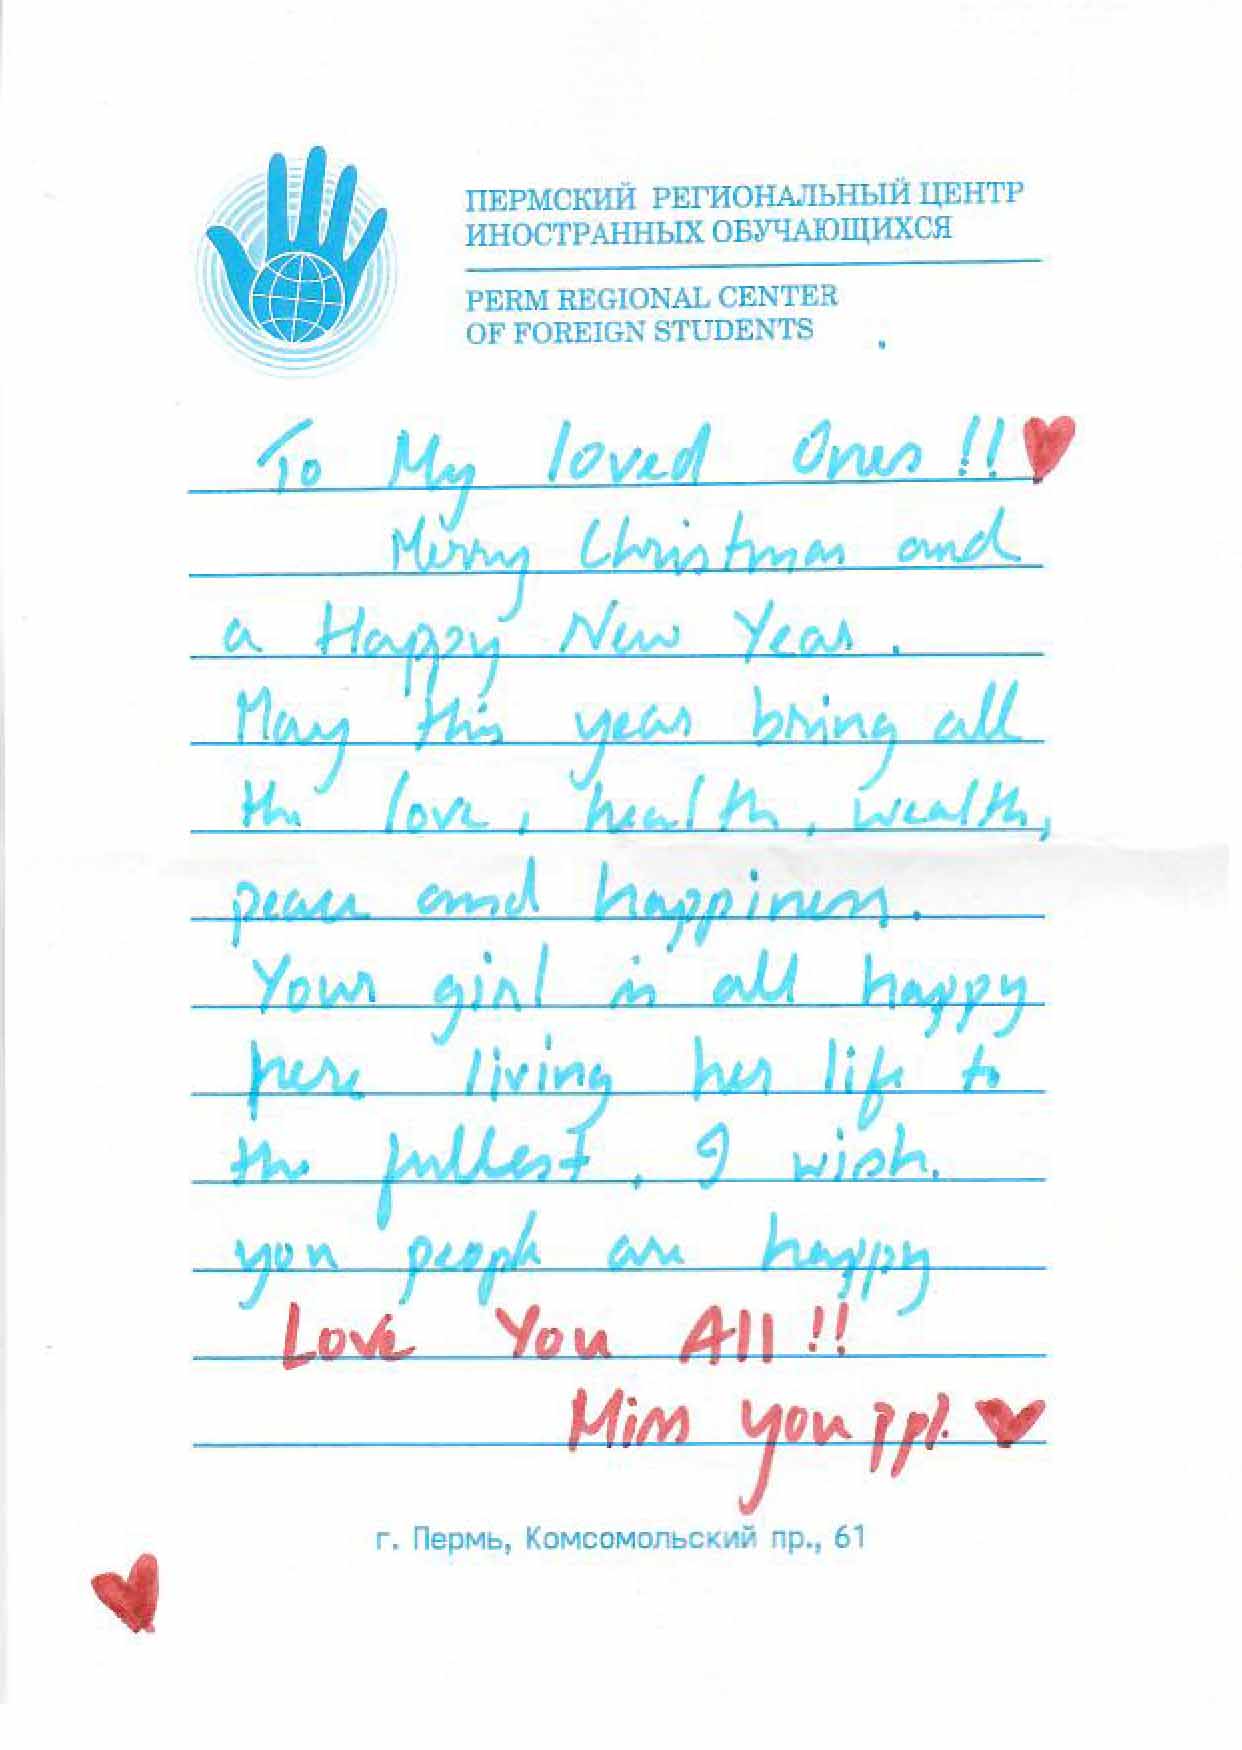 ПЕРМСКИЙ РЕГИОНАЛЬНЫЙ ЦЕНТР
ИНОСТРАННЫХ ОБУЧАЮЩИХСЯ
PERM REGIONAL CENTER
OF FOREIGN STUDENTS
To My loved Ones !!
Merry Christmas and
a Happy New Year.
May this year bring all
the love, health, wealth,
peace and happiness.
Your girl is all happy
here living her life to
the fullest. I wish.
you people are happy
Love You All !!
Miss you ppl.
г. Пермь, Комсомольский пр., 61